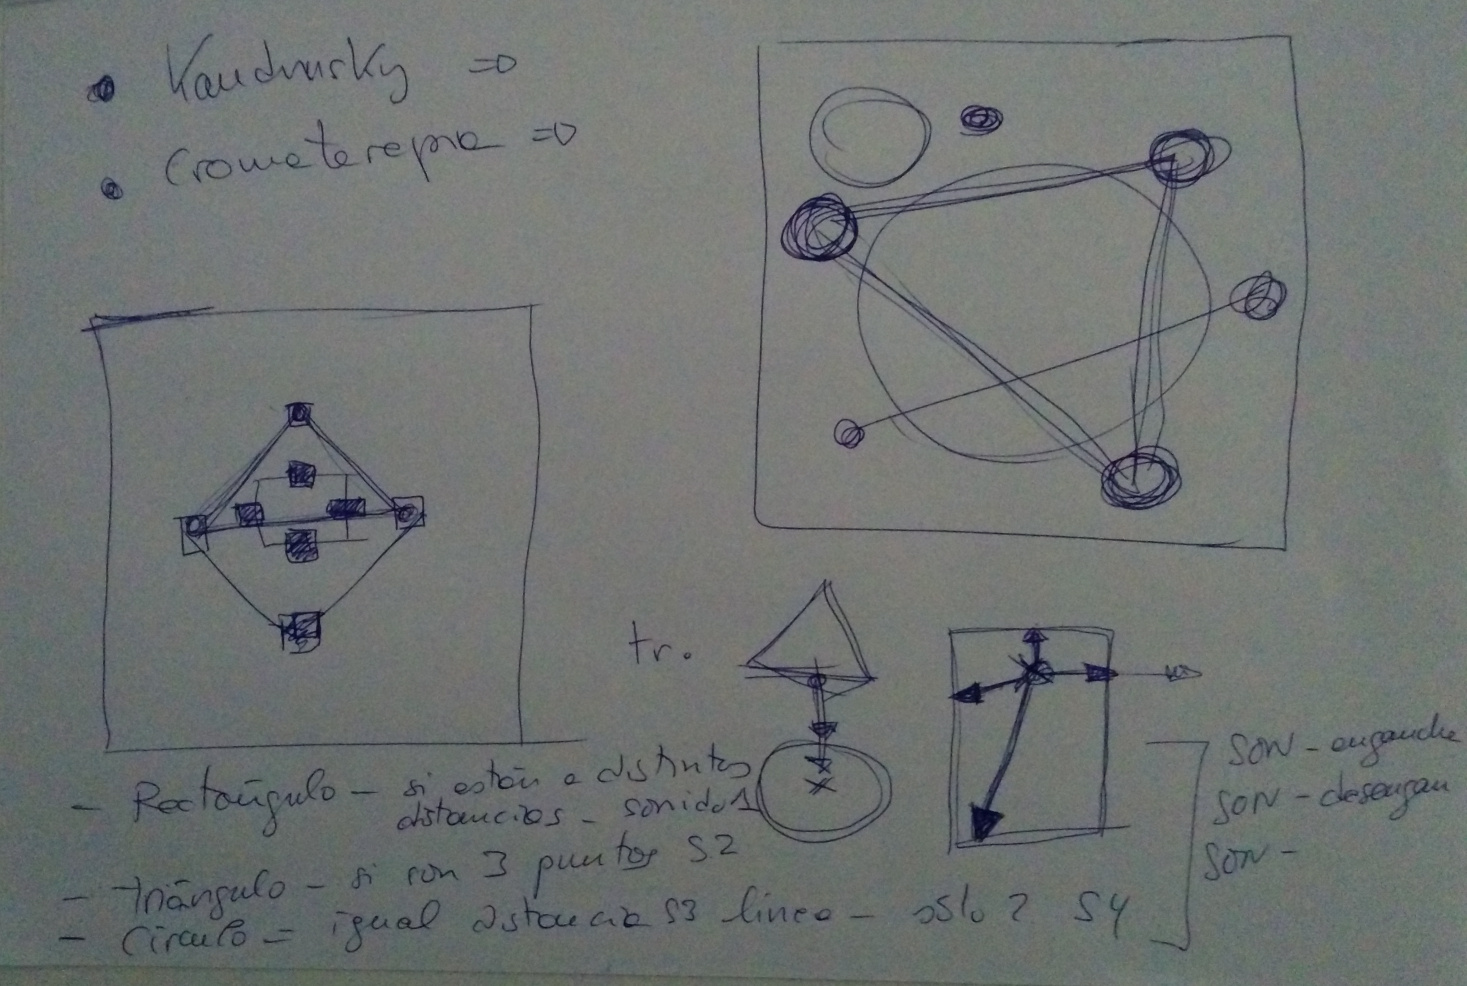 Kandinsky =>
Cromoterapia =>
tr.
- Rectángulo - si están a distintas
distancias - sonido 1
- triángulo - si son 3 puntos S2
- Círculo = igual distancia S3 línea - sólo 2 S4
SON - enganche
SON - desengan
SON -